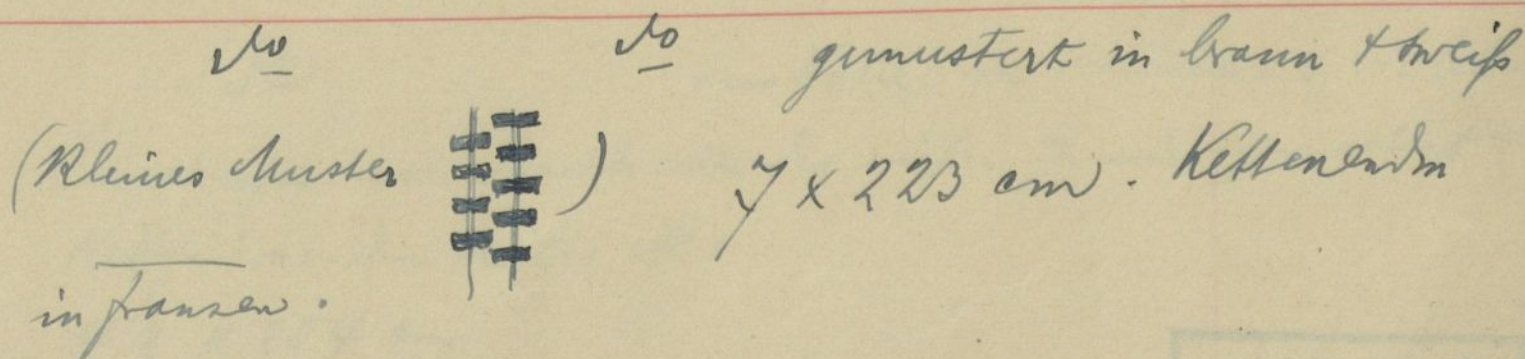 do do gemustert in braun + weiß
(Kleines Muster ) 7 x 223 cm. Kettenenden
in Fransen.